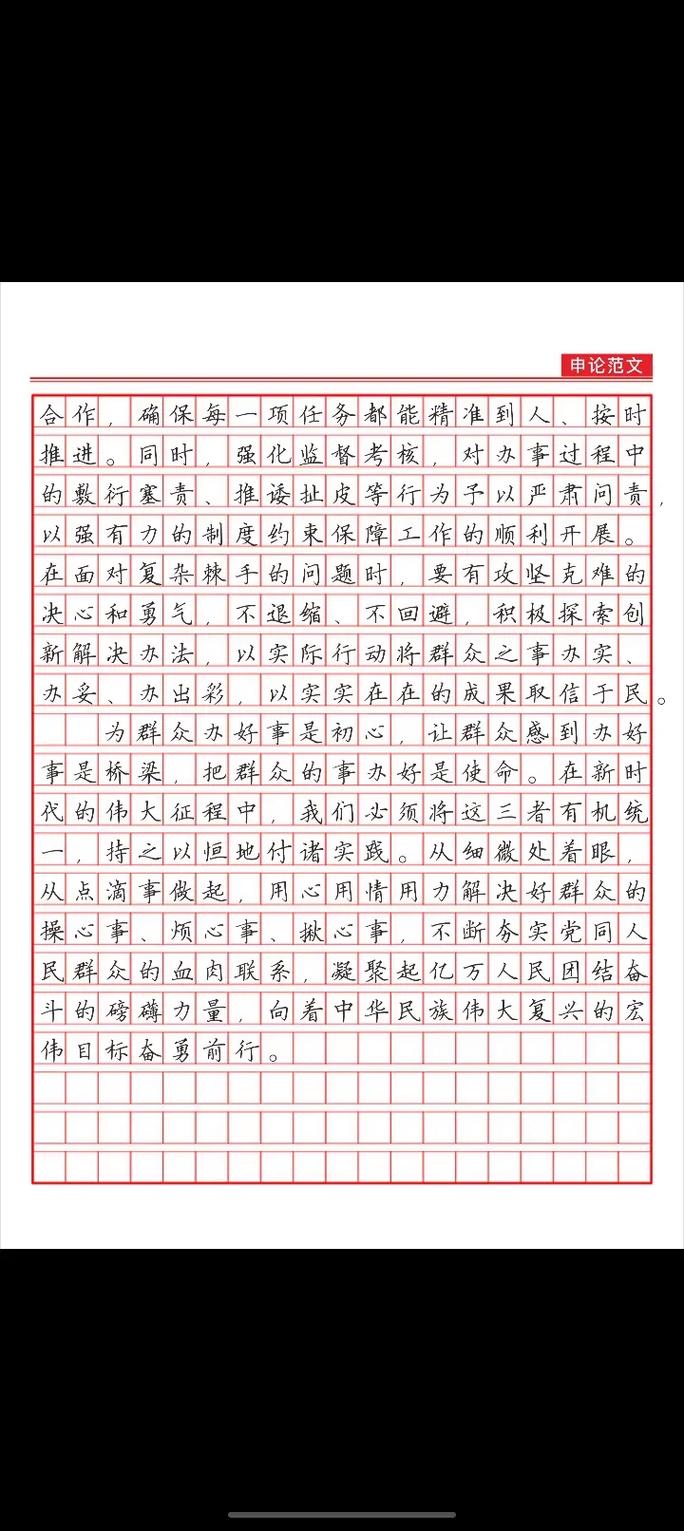 申论范文
合作，确保每一项任务都能精准到人、按时
推进。同时，强化监督考核，对办事过程中
的敷衍塞责、推诿扯皮等行为予以严肃问责，
以强有力的制度约束保障工作的顺利开展。
在面对复杂棘手的问题时，要有攻坚克难的
决心和勇气，不退缩、不回避，积极探索创
新解决办法，以实际行动将群众之事办实、
办妥、办出彩，以实实在在的成果取信于民。
为群众办好事是初心，让群众感到办好
事是桥梁，把群众的事办好是使命。在新时
代的伟大征程中，我们必须将这三者有机统
一，持之以恒地付诸实践。从细微处着眼，
从点滴事做起，用心用情用力解决好群众的
操心事、烦心事、揪心事，不断夯实党同人
民群众的血肉联系，凝聚起亿万人民团结奋
斗的磅礴力量，向着中华民族伟大复兴的宏
伟目标奋勇前行。